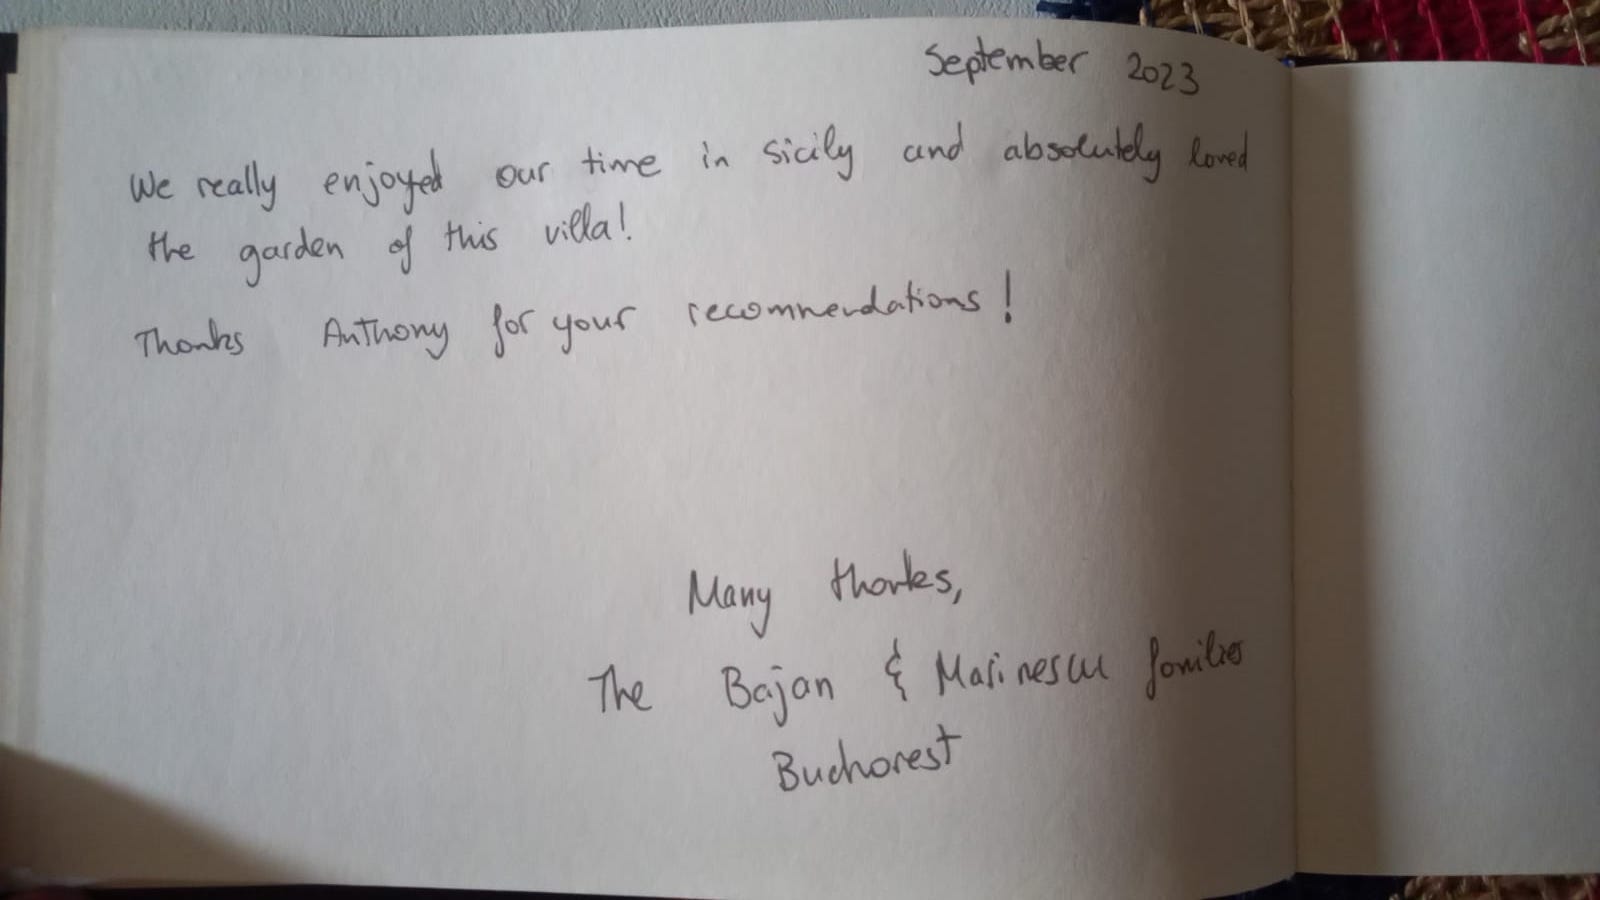 September 2023
We really enjoyed our time in Sicily and absolutely loved
the garden of this villa!
Thanks Anthony for your recommendations!
Many thanks,
The Bajan & Marinescu families
Bucharest